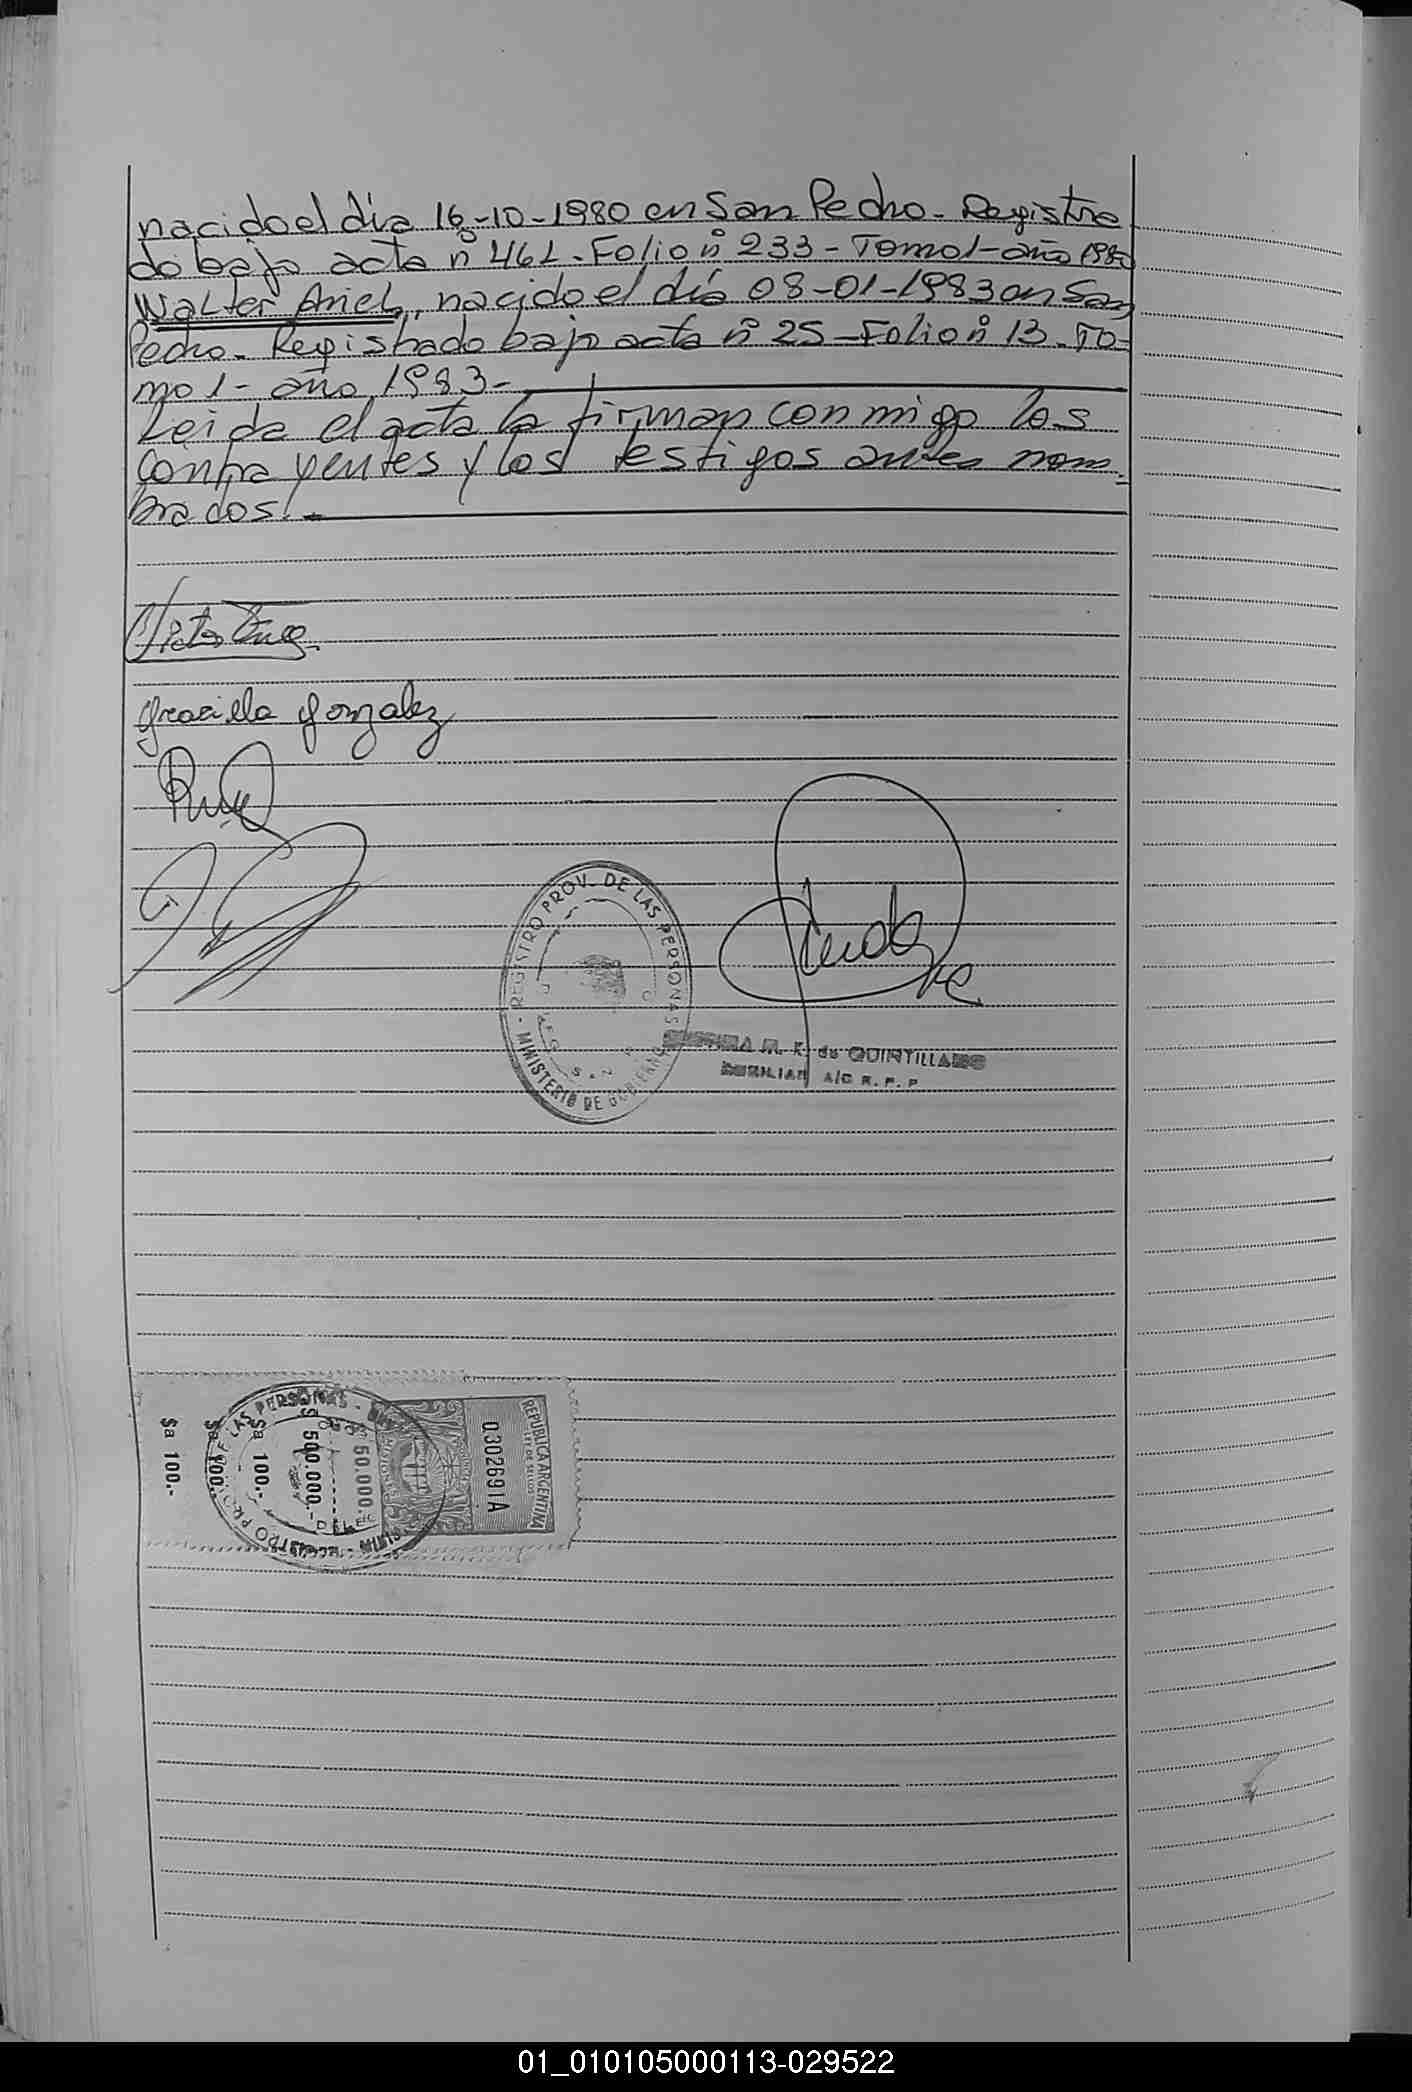 nacido el día 16-10-1980 en San Pedro - Registra
do bajo acta nº 461 - Folio nº 233 - Tomo 1 - año 1980
Walter Ariel, nacido el día 08-01-1983 en San
Pedro - Registrado bajo acta nº 25 - Folio nº 13 - To-
mo 1 - año 1983 -
Leida el acta la firman conmigo los
contrayentes y los testigos antes nom=
brados. -
Graciela Gonzalez
REGISTRO PROV. DE LAS PERSONAS
MINISTERIO DE GOBIERNO
M. K. de QUINTILLANO
AUXILIAR A/C R. P. P
REPUBLICA ARGENTINA
LEY DE SELLOS
0302691A
50.000
$ 500.000.-
$a 100.-
$a 100.-
$a 100.-
01_010105000113-029522